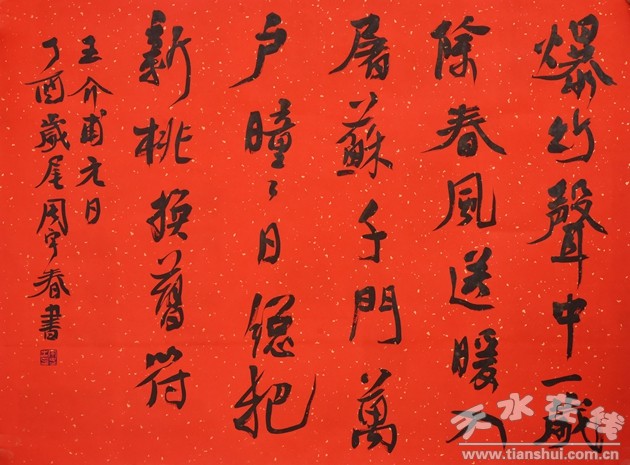 爆竹聲中一歲
除春風送暖入
屠蘇千門萬
戶曈々日總把
新桃換舊符
王介甫元日
丁酉歲尾周宇春書
天水在线
www.tianshui.com.cn